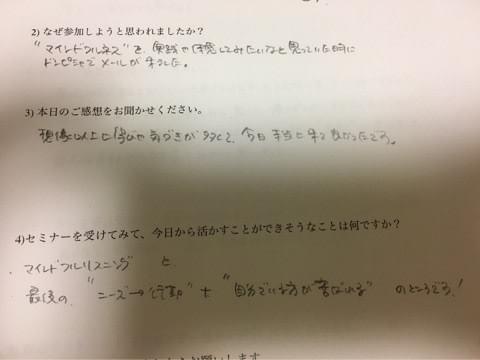 2) なぜ参加しようと思われましたか？
"マインドフルネス"を、実践や体感してみたいなと思っていた時に
ドンピシャでメールが来ました。
3) 本日のご感想をお聞かせください。
想像以上に学びや気づきが多くて、今日本当に来て良かったです。
4)セミナーを受けてみて、今日から活かすことができそうなことは何ですか？
・マインドフルリスニング と、
最後の、"ニーズ→行動" と "自分でいる方が喜ばれる" のところです！
お願いします